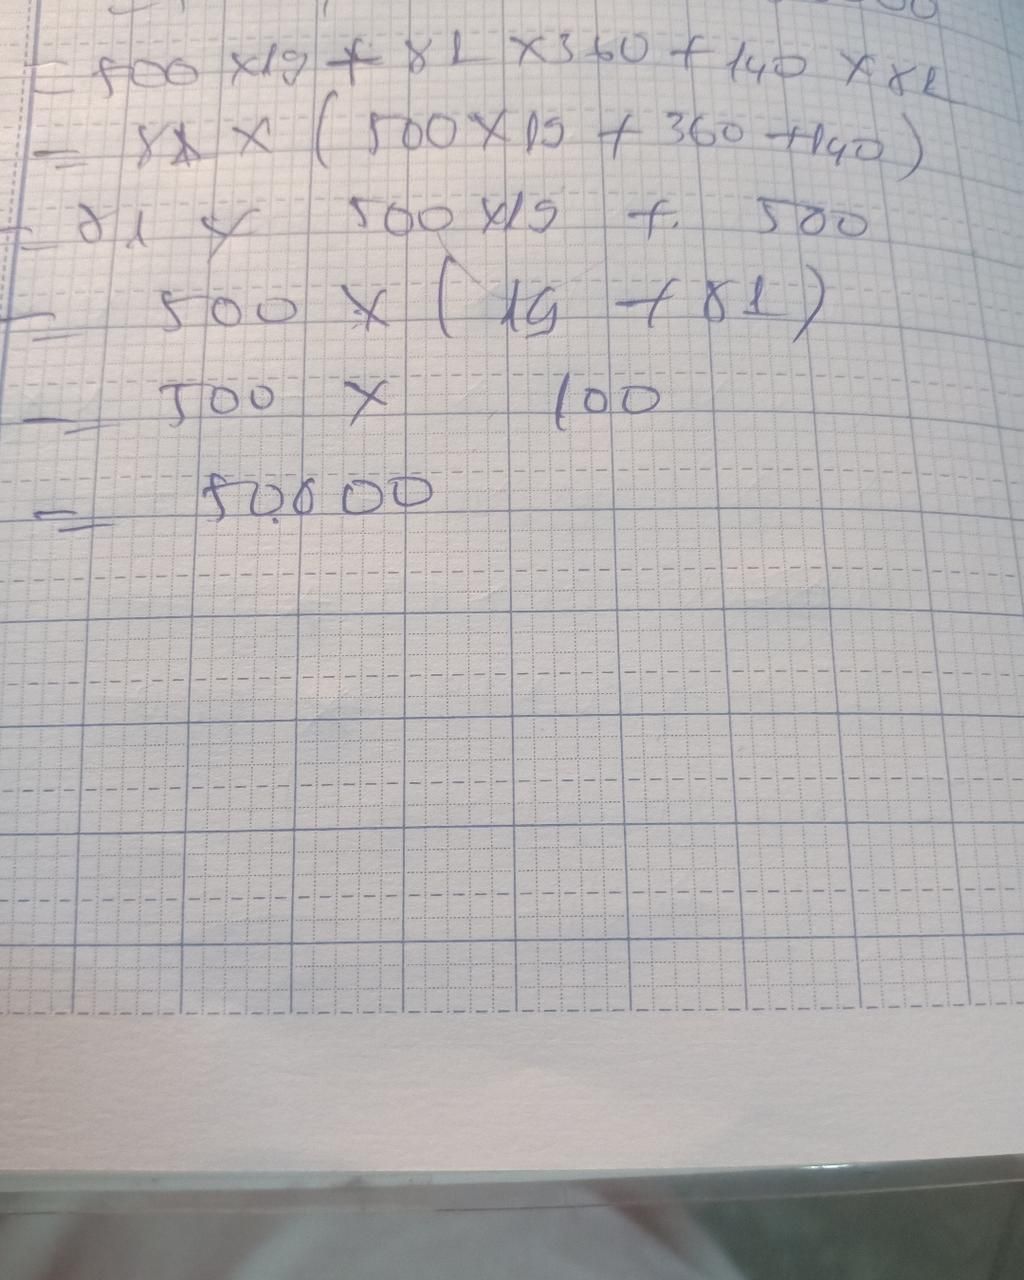 = 500 x 19 + 81 x 360 + 140 x 81
= 81 x ( 500 x 19 + 360 + 140 )
= 81 x 500 x 19 + 500
= 500 x ( 19 + 81 )
= 500 x 100
= 50.000